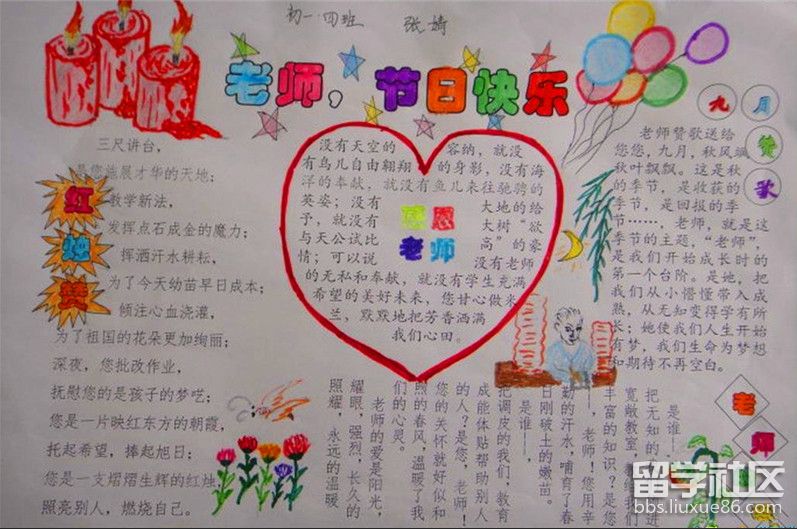 初一·四班 张婧
老师，节日快乐
三尺讲台，
是您施展才华的天地；
教学新法，
发挥点石成金的魔力；
挥洒汗水耕耘，
为了今天幼苗早日成本；
倾注心血浇灌，
为了祖国的花朵更加绚丽；
深夜，您批改作业，
抚慰您的是孩子的梦呓；
您是一片映红东方的朝霞，
托起希望，捧起旭日；
您是一支熠熠生辉的红烛，
照亮别人，燃烧自己。
红烛赞
没有天空的容纳，就没
有鸟儿自由翱翔的身影，没有海
洋的奉献，就没有鱼儿来往驰骋的
英姿；没有大地的给
予，就没有大树“欲
与天公试比高”的豪
情；可以说没有老师
的无私和奉献，就没有学生充满
希望的美好未来，您甘心做米
兰，默默地把芳香洒满
我们心田。
感恩
老师
九月赞歌
老师赞歌送给
您您，九月，秋风飒
秋叶飘飘。这是秋
的季节，是收获的
季节，是回报的季
节……，老师，就是这
季节的主题，“老师”，
是我们开始成长时的
第一个台阶。是她，把
我们从小懵懂带入成
熟，从无知变得学有所
长；她使我们人生开始
有梦，我们生命为梦想
和期待不再空白。
是谁——
把无知的我们
宽敞教室，教给我们
丰富的知识？是您
——，老师！您用辛
勤的汗水，哺育了春
日刚破土的嫩苗。
是谁——，
把调皮的我们，教育
成能体贴帮助别人
的人？是您，老师！
您的关怀就好似和
煦的春风，温暖了我
们的心灵。
老师的爱是阳光，
耀眼，强烈，长久的
照耀，永远的温暖
老师
留学社区
bbs.liuxue86.com